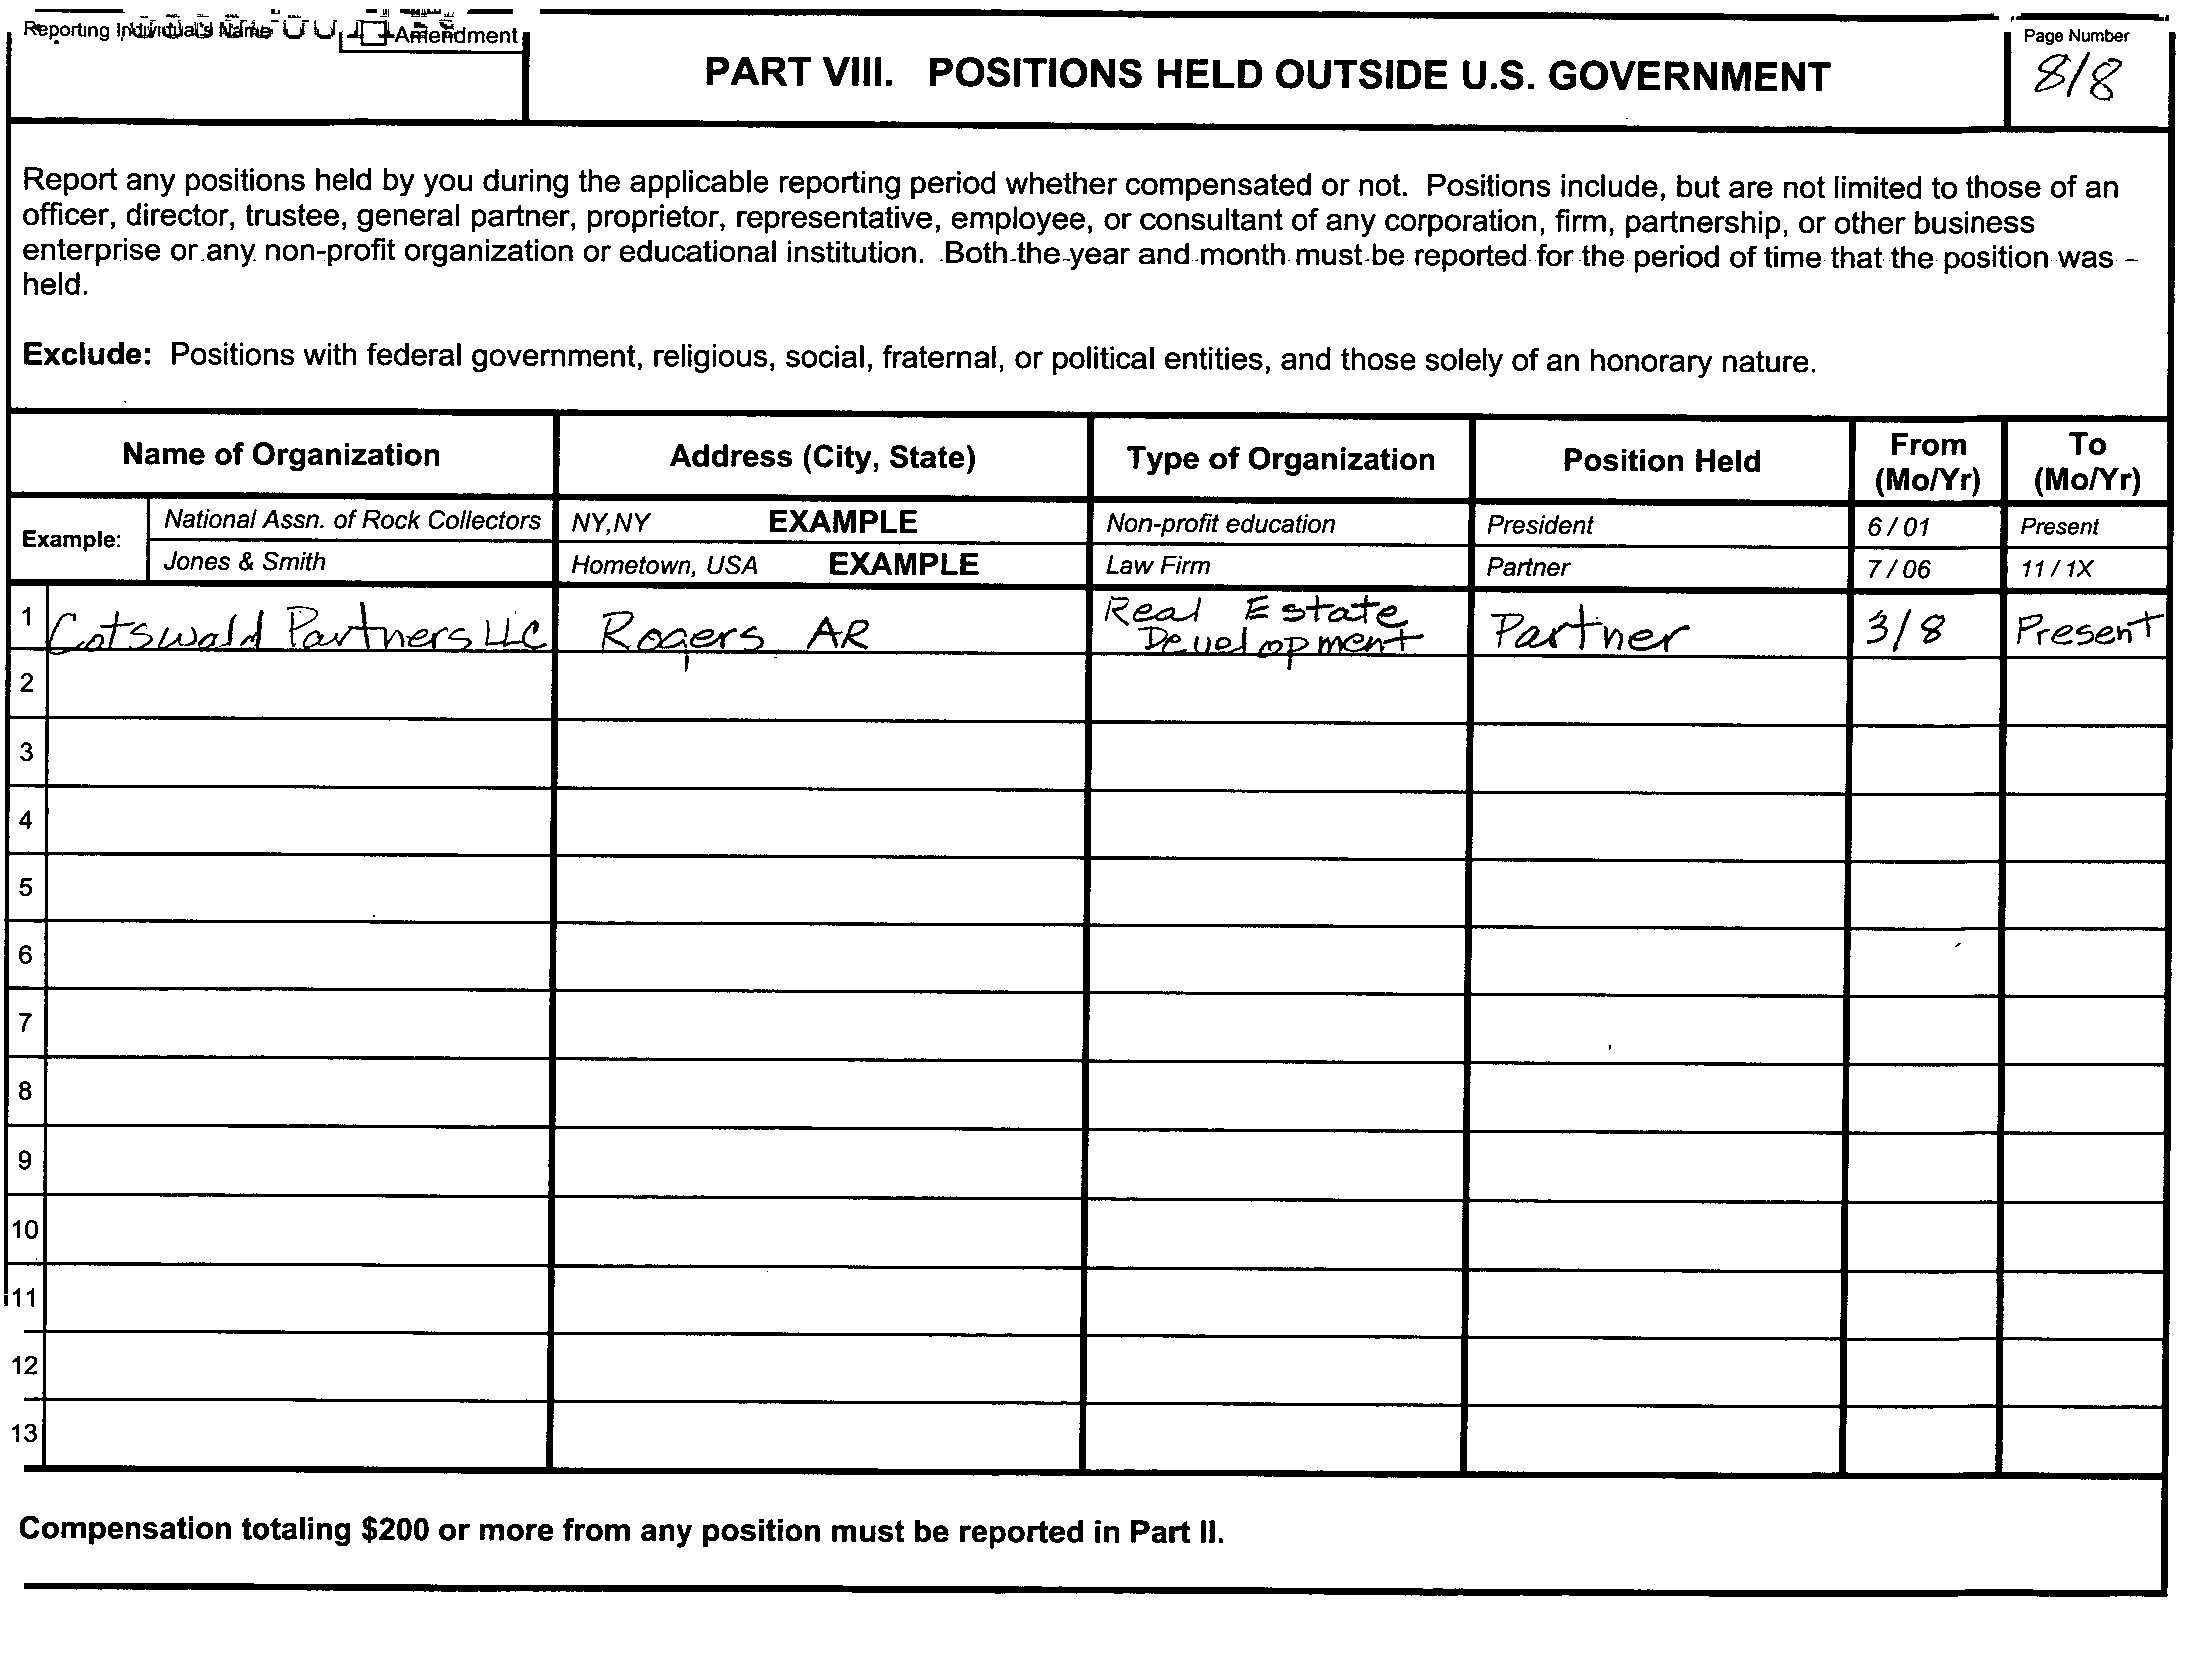 Reporting Individual's Name
Amendment
PART VIII. POSITIONS HELD OUTSIDE U.S. GOVERNMENT
Page Number
8/8
Report any positions held by you during the applicable reporting period whether compensated or not. Positions include, but are not limited to those of an
officer, director, trustee, general partner, proprietor, representative, employee, or consultant of any corporation, firm, partnership, or other business
enterprise or any non-profit organization or educational institution. Both the year and month must be reported for the period of time that the position was
held.
Exclude: Positions with federal government, religious, social, fraternal, or political entities, and those solely of an honorary nature.
Name of Organization Address (City, State) Type of Organization Position Held From (Mo/Yr) To (Mo/Yr)
Example:
National Assn. of Rock Collectors NY,NY EXAMPLE Non-profit education President 6 / 01 Present
Jones & Smith Hometown, USA EXAMPLE Law Firm Partner 7 / 06 11 / 1X
1 Cotswald Partners LLC Rogers AR Real Estate Development Partner 3/8 Present
2
3
4
5
6
7
8
9
10
11
12
13
Compensation totaling $200 or more from any position must be reported in Part II.